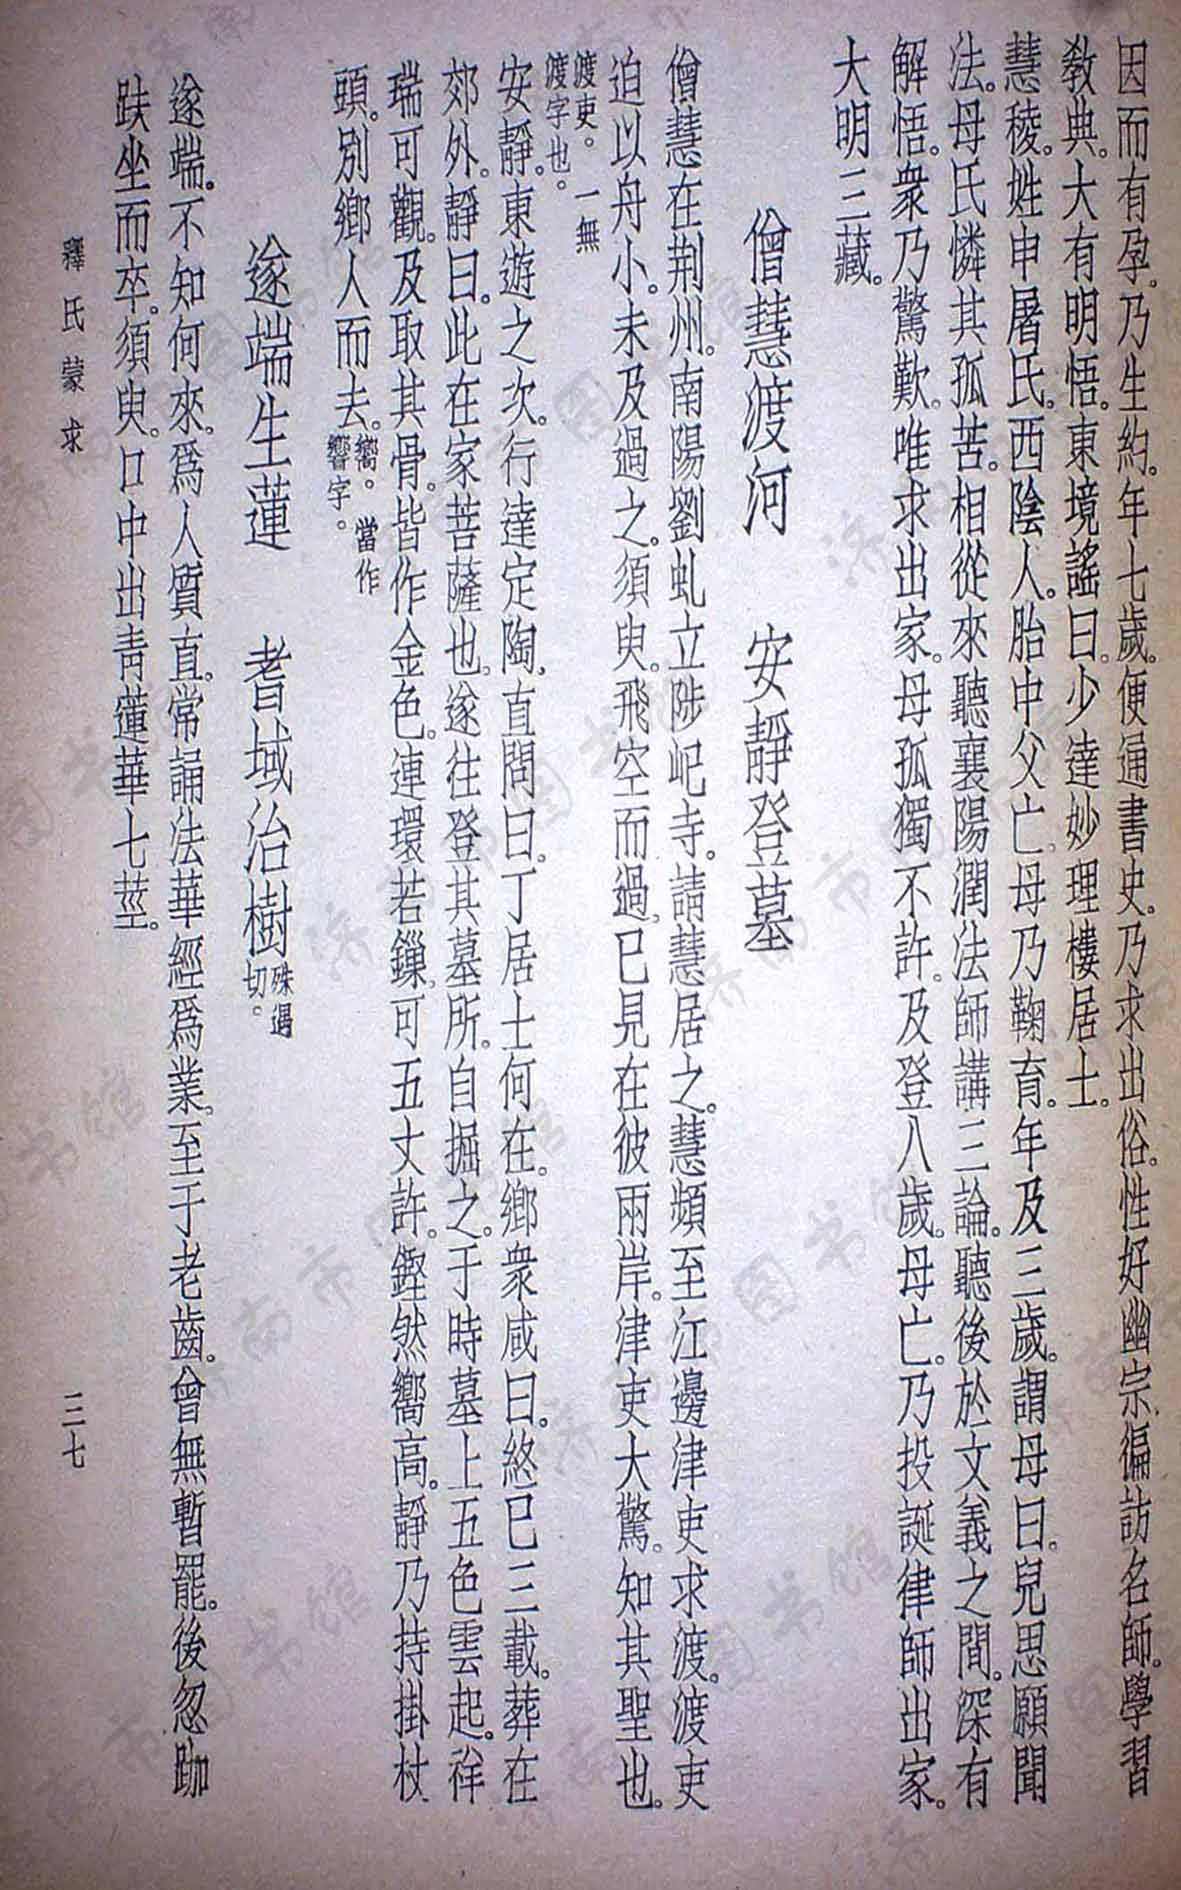 因而有孕。乃生約。年七歲。便通書史。乃求出俗。性好幽宗。徧訪名師。學習
教典。大有明悟。東境謠曰。少達妙理樓居士。
慧稜。姓申屠氏。西陰人。胎中父亡。母乃鞠育。年及三歲。謂母曰。兒思願聞
法。母氏憐其孤苦。相從來聽襄陽潤法師講三論。聽後於文義之間。深有
解悟。衆乃驚歎。唯求出家。母孤獨不許。及登八歲。母亡。乃投誕律師出家。
大明三藏。
僧慧渡河　安靜登墓
僧慧在荆州。南陽劉虬立陟屺寺。請慧居之。慧頻至江邊津吏求渡。渡吏
迫以舟小。未及過之。須臾。飛空而過。已見在彼兩岸。津吏大驚。知其聖也。
渡吏。一無
渡字也。
安靜。東遊之次。行達定陶。直問曰。丁居士何在。鄉衆咸曰。終已三載。葬在
郊外。靜曰。此在家菩薩也。遂往登其墓所。自掘之。于時墓上五色雲起。祥
瑞可觀。及取其骨。皆作金色。連環若鏁。可五丈許。鏗然嚮高。靜乃持掛杖
頭。別鄉人而去。
嚮。當作
響字。
遂端生蓮　耆域治樹
殊遇
切。
遂端。不知何來。爲人質直。常誦法華經爲業。至于老齒。曾無暫罷。後忽跏
趺坐而卒。須臾。口中出靑蓮華七莖。
釋氏蒙求
三七
济南市图书馆